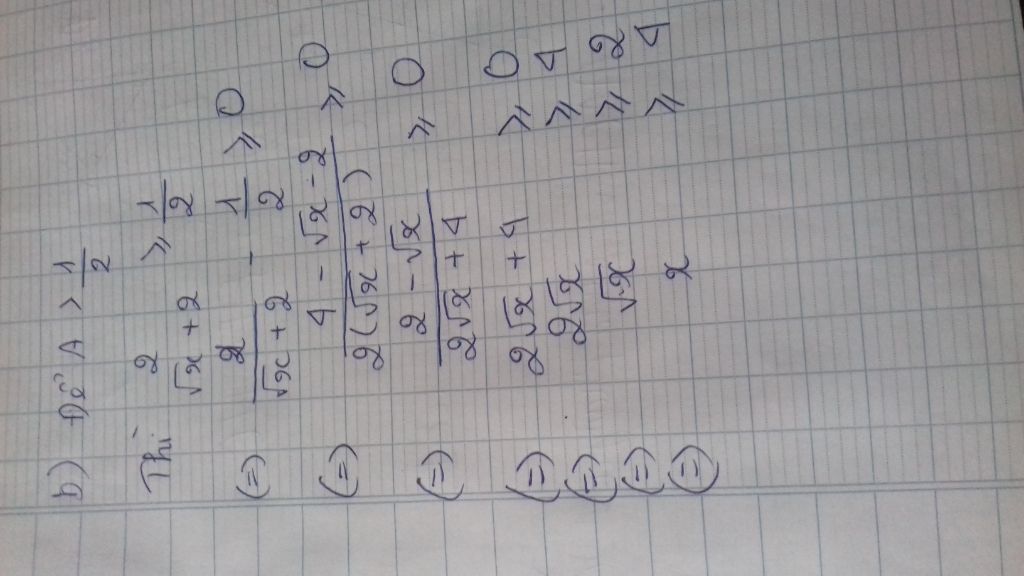 b) Để A > 1/2
Thì 2/(√x + 2) ⩾ 1/2
(=) 2/(√x + 2) - 1/2 ⩾ 0
(=) (4 - √x - 2)/(2(√x + 2)) ⩾ 0
(=) (2 - √x)/(2√x + 4) ⩾ 0
(=) 2√x + 4 ⩾ 0
(=) 2√x ⩾ 4
(=) √x ⩾ 2
(=) x ⩾ 4